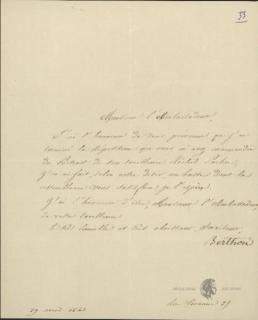 33
Monsieur l'Ambassadeur,
J'ai l'honneur de vous prévenir que j'ai
terminé la répétition que vous m'avez commandée
du Portrait de Son Excellence Réchid Pacha,
j'en ai fait, selon votre désir, un buste dont la
ressemblance vous satisfera je l'espère.
J'ai l'honneur d'être, Monsieur l'Ambassadeur,
de votre Excellence
le très humble et très obéissant Serviteur,
Berthon
29 1846
rue 29